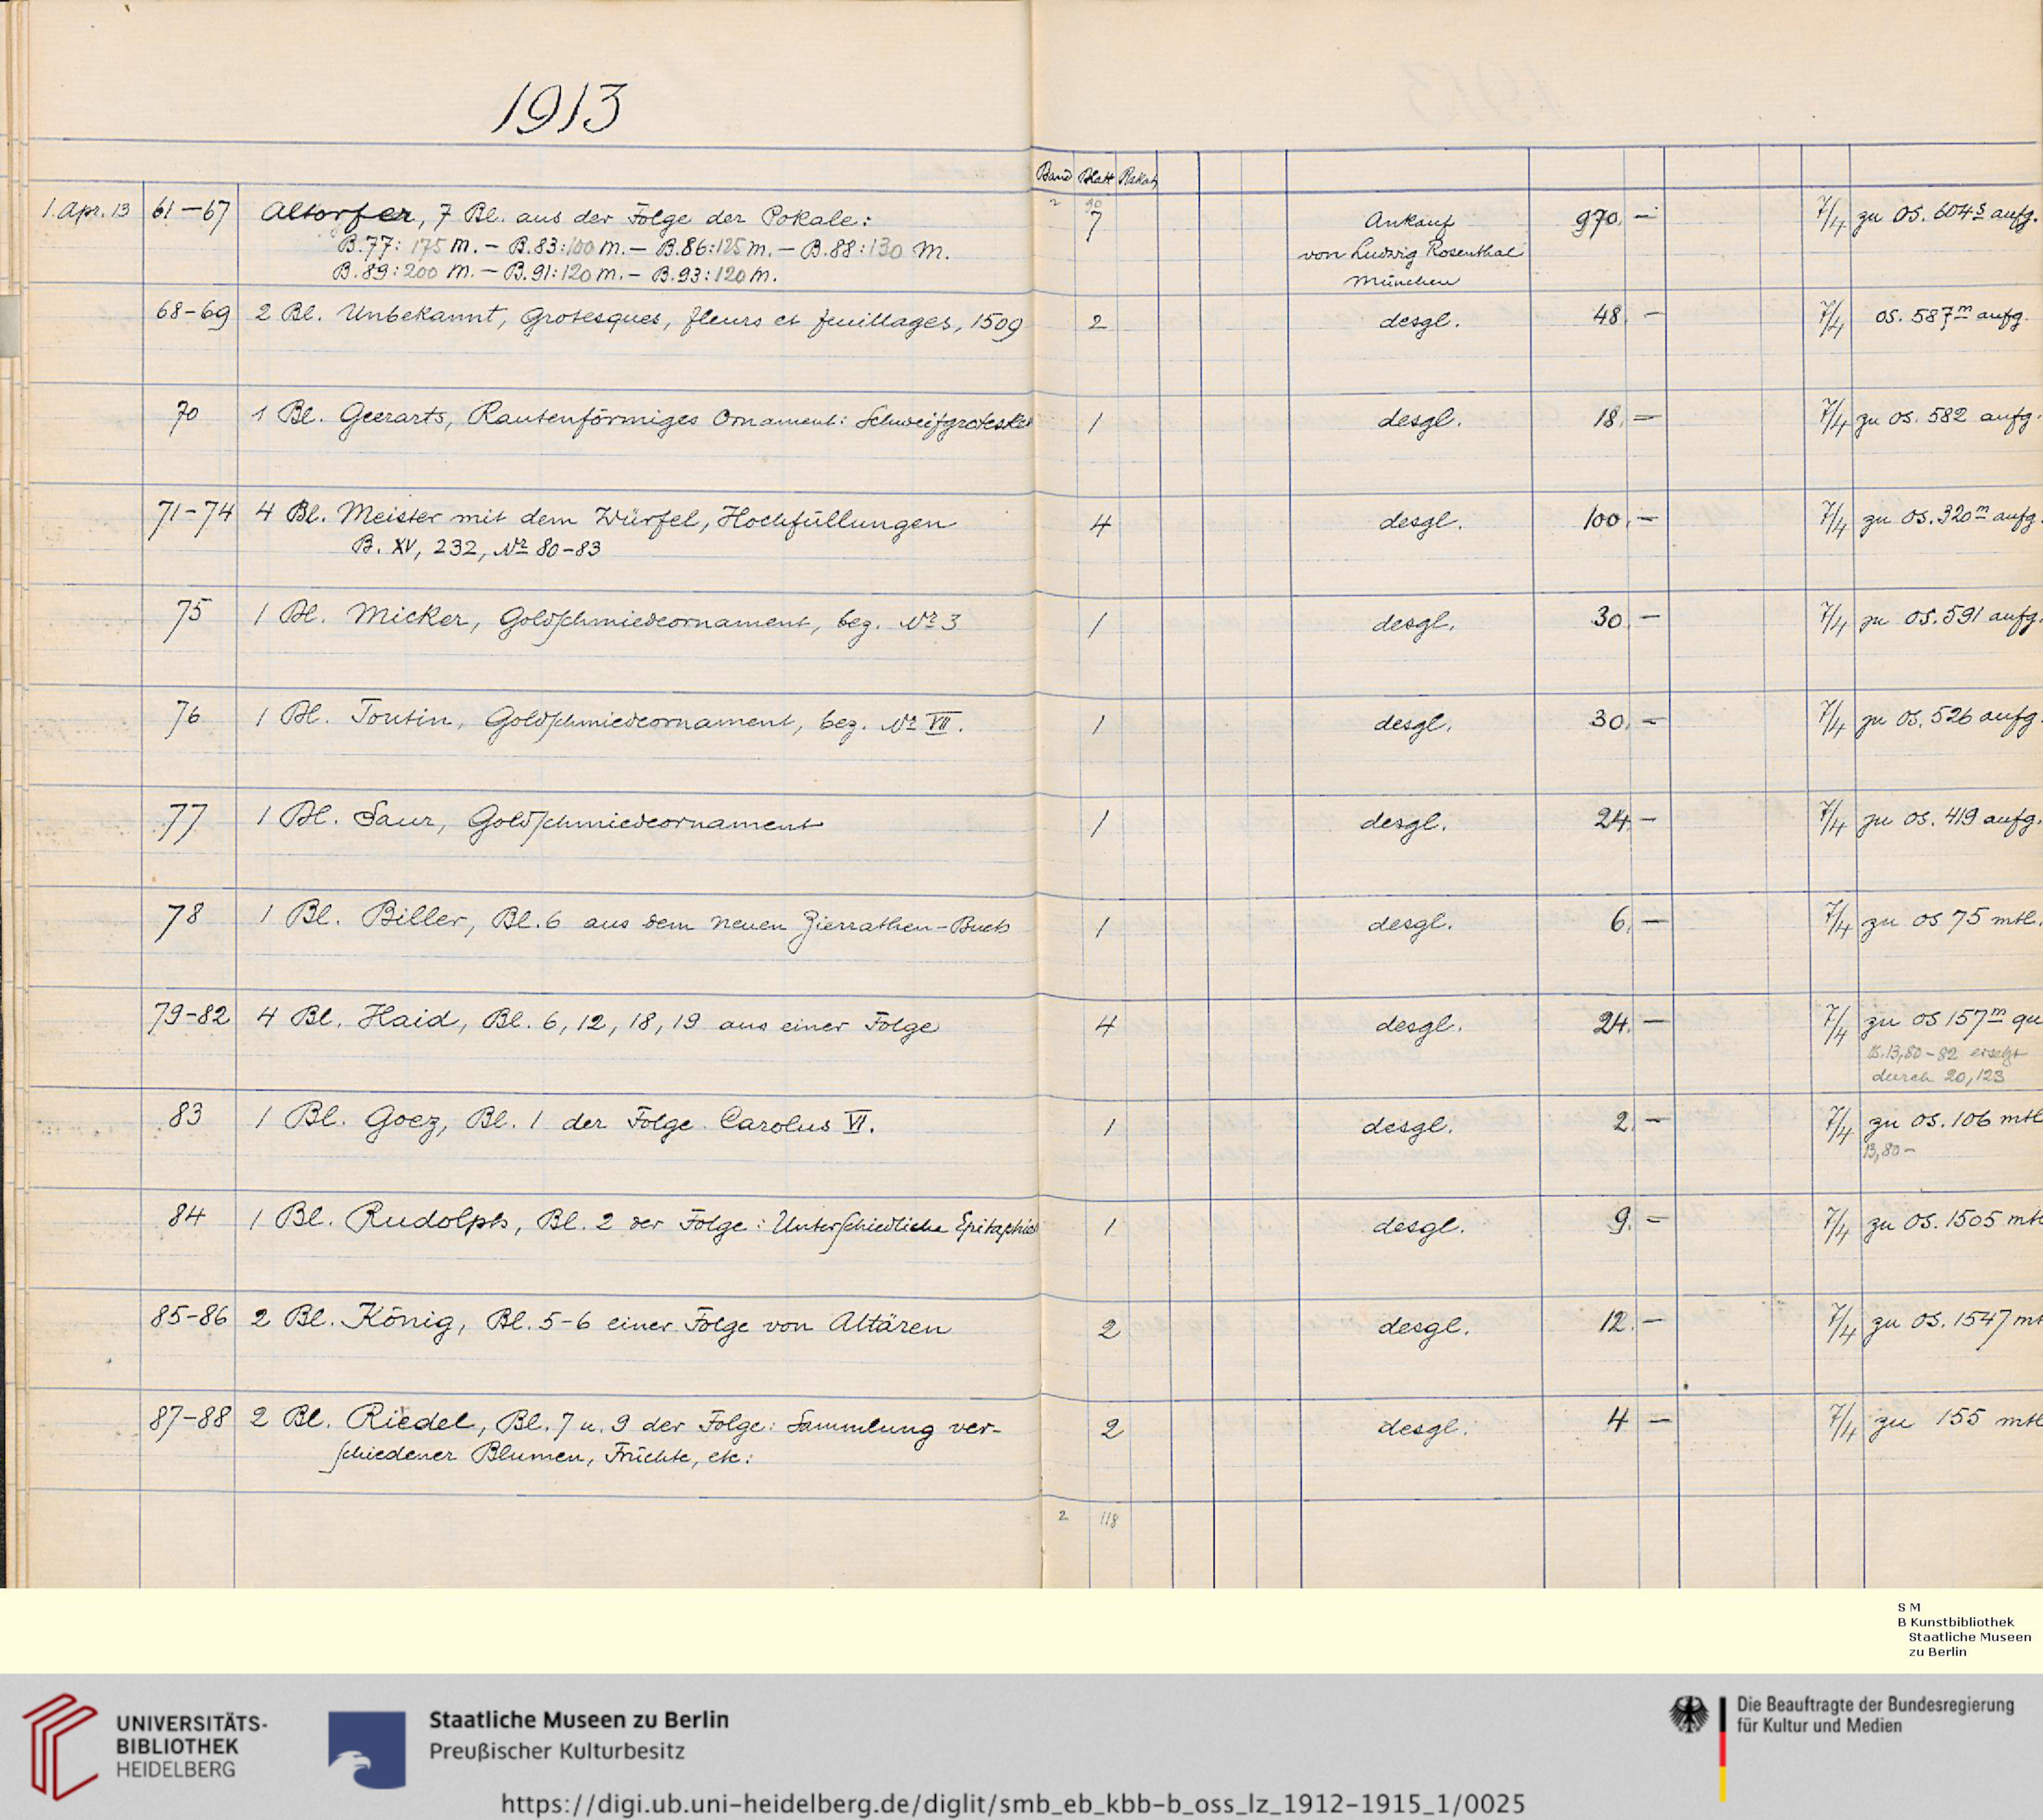 1913
Band Blatt Plakat
2 90
1. Apr. 13 61-67 Altorfer, 7 Bl. aus der Folge der Pokale: 7 Ankauf 970.- 7/4 zu OS. 604 s aufg.
B.77: 175 M. - B.83: 100 M. - B.86: 125 M. - B.88: 130 M. von Ludwig Rosenthal
B.89: 200 M. - B.91: 120 M. - B.93: 120 M. München
68-69 2 Bl. Unbekannt, Grotesques, fleurs et feuillages, 1509 2 desgl. 48.- 7/4 OS. 587 m aufg.
70 1 Bl. Geerarts, Rautenförmiges Ornament: Schweifgroteske 1 desgl. 18.= 7/4 zu OS. 582 aufg.
71-74 4 Bl. Meister mit dem Würfel, Hochfüllungen 4 desgl. 100.- 7/4 zu OS. 320 m aufg.
B. XV, 232, No 80-83
75 1 Bl. Micker, Goldschmiedeornament, bez. No 3 1 desgl. 30.- 7/4 zu OS. 591 aufg.
76 1 Bl. Toutin, Goldschmiedeornament, bez. No VII. 1 desgl. 30.- 7/4 zu OS. 526 aufg.
77 1 Bl. Saur, Goldschmiedeornament 1 desgl. 24.- 7/4 zu OS. 419 aufg.
78 1 Bl. Biller, Bl. 6 aus dem neuen Zierrathen-Buch 1 desgl. 6.- 7/4 zu OS 75 mtl.
79-82 4 Bl. Haid, Bl. 6, 12, 18, 19 aus einer Folge 4 desgl. 24.- 7/4 zu OS 157 m qu
13,80-82 ersetzt
durch 20,123
83 1 Bl. Goez, Bl. 1 der Folge Carolus VI. 1 desgl. 2.- 7/4 zu OS. 106 mtl
13,80-
84 1 Bl. Rudolph, Bl. 2 der Folge: Unterschiedliche Epitaphien 1 desgl. 9.= 7/4 zu OS. 1505 mtl
85-86 2 Bl. König, Bl. 5-6 einer Folge von Altären 2 desgl. 12.- 7/4 zu OS. 1547 mt
87-88 2 Bl. Riedel, Bl. 7 u. 9 der Folge: Sammlung ver- 2 desgl. 4 - 7/4 zu 155 mtl
schiedener Blumen, Früchte, etc:
2 118
S M
B Kunstbibliothek
Staatliche Museen
zu Berlin
UNIVERSITÄTS-
BIBLIOTHEK
HEIDELBERG
Staatliche Museen zu Berlin
Preußischer Kulturbesitz
Die Beauftragte der Bundesregierung
für Kultur und Medien
https://digi.ub.uni-heidelberg.de/diglit/smb_eb_kbb-b_oss_lz_1912-1915_1/0025